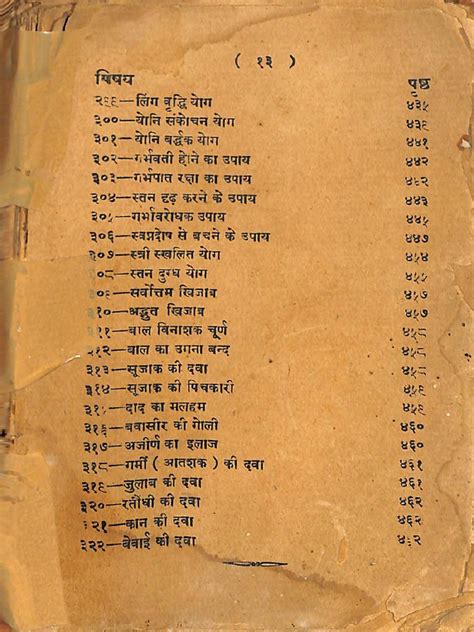 ( १३ )
विषय पृष्ठ
२९९—लिंग वृद्धि योग ४३५
३००—योनि संकोचन योग ४३९
३०१—योनि बर्द्धक योग ४४१
३०२—गर्भवती होने का उपाय ४४२
३०३—गर्भपात रक्षा का उपाय ४४२
३०४—स्तन दृढ़ करने के उपाय ४४३
३०५—गर्भावरोधक उपाय ४४५
३०६—स्वप्नदोष से बचने के उपाय ४४७
३०७—स्त्री स्खलित योग ४५४
३०८—स्तन दुग्ध योग ४५५
३०९—सर्वोत्तम खिजाब ४५७
३१०—अद्भुत खिजाब ४५७
३११—बाल विनाशक चूर्ण ४५८
३१२—बाल का उगना बन्द ४५८
३१३—सूजाक की दवा ४५८
३१४—सूजाक की पिचकारी ४५९
३१५—दाद का मलहम ४५९
३१६—बवासीर की गोली ४६०
३१७—अजीर्ण का इलाज ४६०
३१८—गर्मी ( आतशक ) की दवा ४६१
३१९—जुलाब की दवा ४६१
३२०—रतौंधी की दवा ४६२
३२१—कान की दवा ४६२
३२२—बेवाई की दवा ४६२